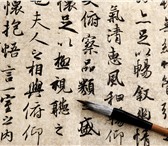 足以暢叙幽情
氣清惠風和暢
俯察品類盛
懷足以極視聽之
也夫人之相與俯仰
懷抱悟言一室之内